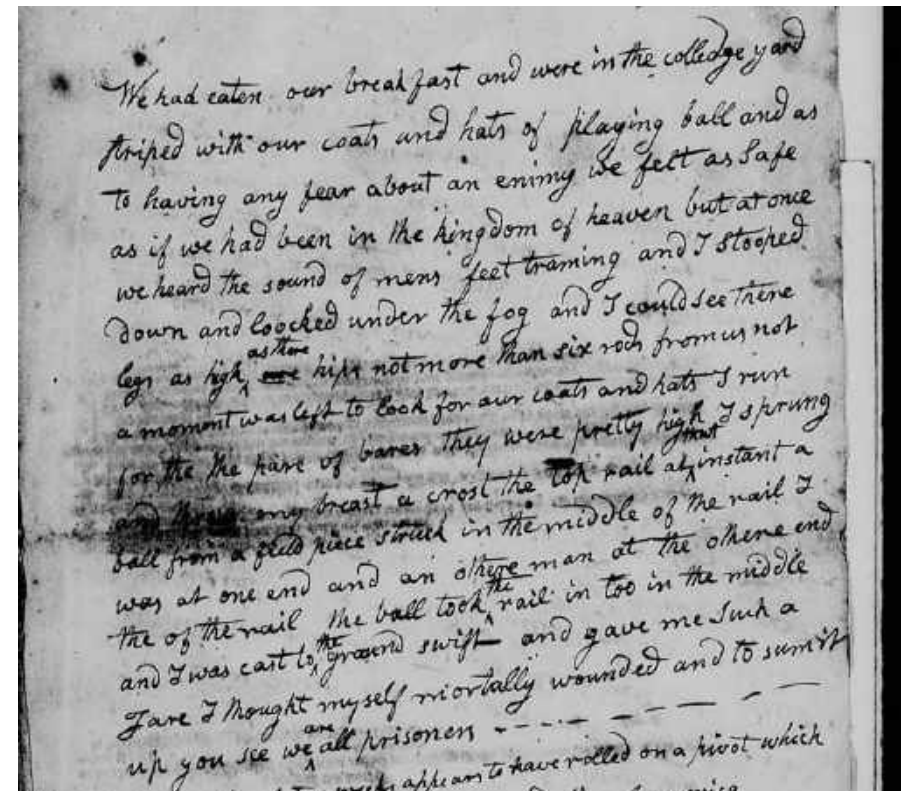 We had eaten our breakfast and were in the colledge yard
striped with our coats and hats of playing ball and as
to having any fear about an enimy we felt as Safe
as if we had been in the kingdom of heaven but at once
we heard the sound of mens feet traming and I stooped
down and loocked under the fog and I could see there
legs as high as there hips not more than six rods from us not
a moment was left to look for our coats and hats I run
for the the pare of bares they were pretty high I sprung
and my breast a crost the top rail at that instant a
ball from a feild piece struck in the middle of the rail I
was at one end and an othere man at the othere end
the of the rail the ball took the rail in too in the middle
and I was cast to the ground swift and gave me Such a
Jare I thought myself mortally wounded and to sum it
up you see we are all prisoners - - - - - - - -
appears to have rolled on a pivot which